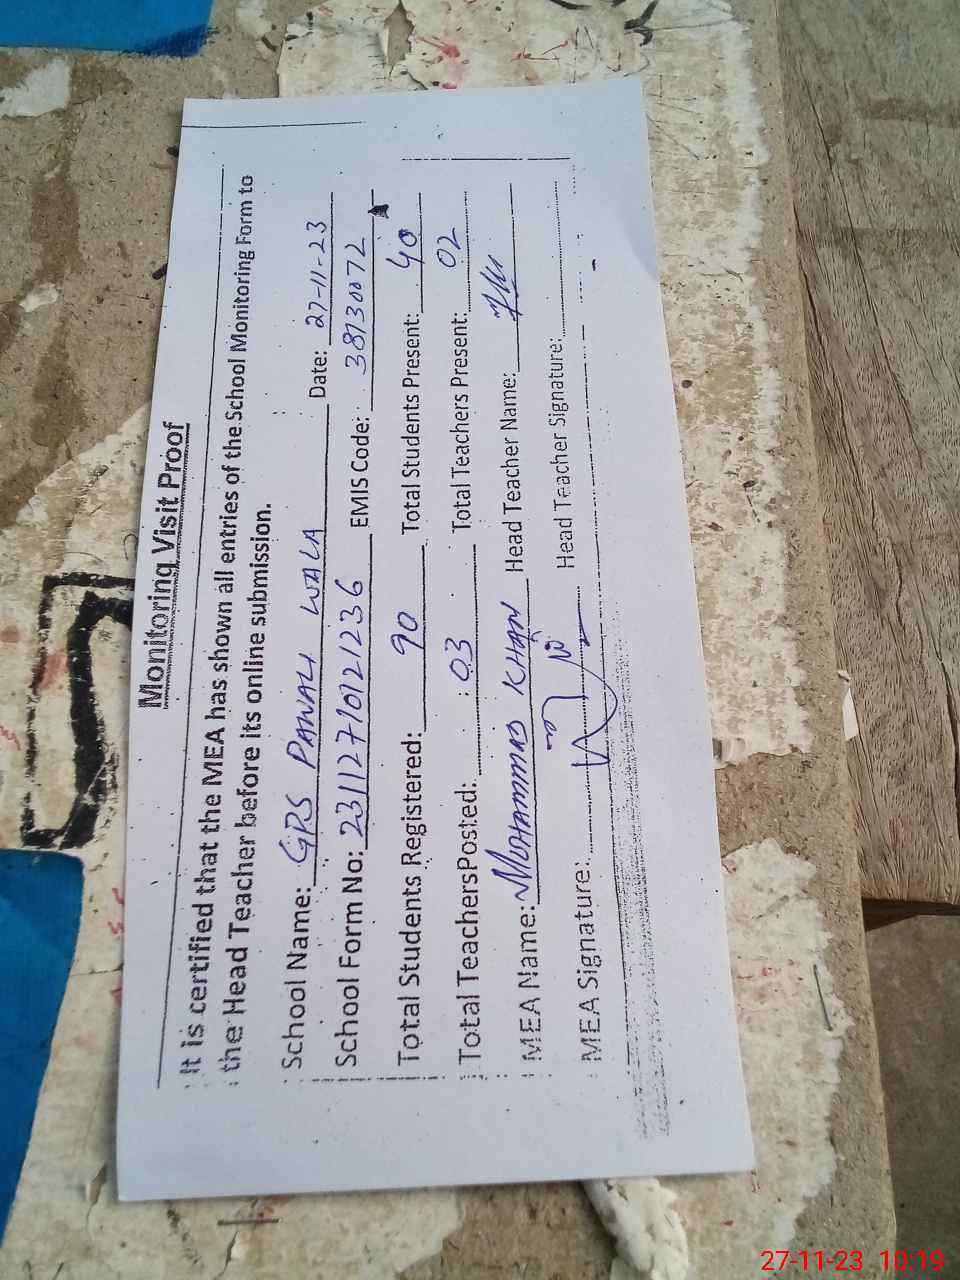 Monitoring Visit Proof
It is certified that the MEA has shown all entries of the School Monitoring Form to
the Head Teacher before its online submission.
School Name: GPS PAWALI WALA Date: 27-11-23
School Form No: 23112710121236 EMIS Code: 38130072
Total Students Registered: 90 Total Students Present: 40
Total Teachers Posted: 03 Total Teachers Present: 02
MEA Name: MOHAMMAD KHAN Head Teacher Name:
MEA Signature: Head Teacher Signature:
27-11-23 10:19